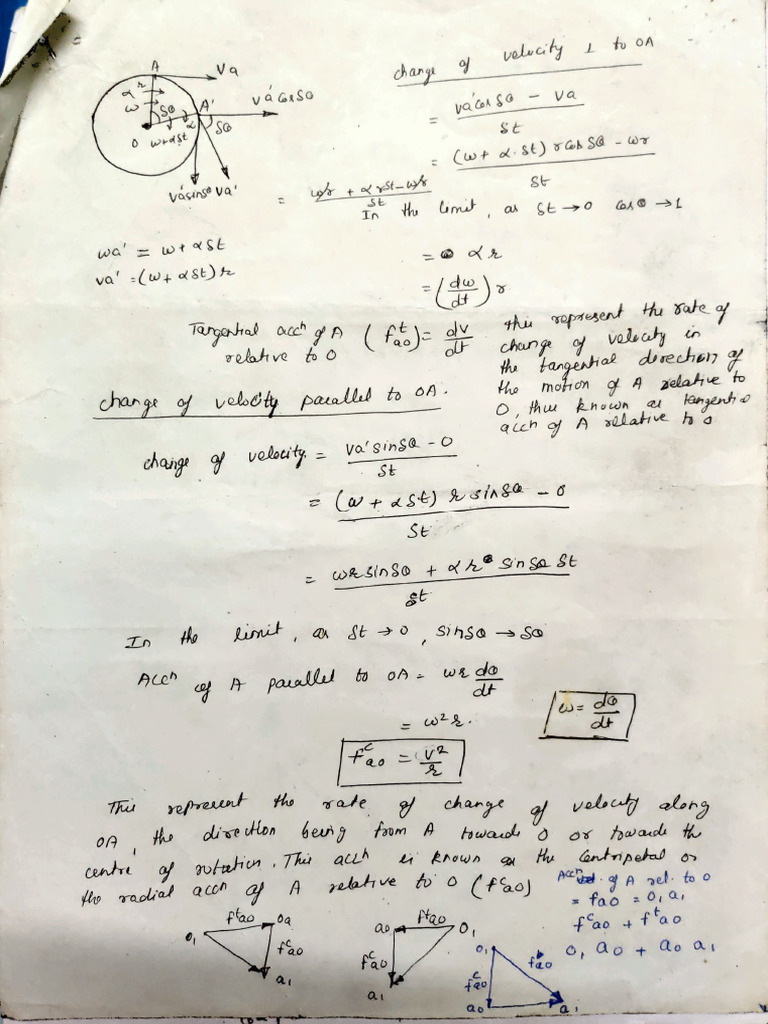 A
Va
α r
ω
δθ
A'
Va' cos δθ
α
δθ
O
ω+αδt
Va' sin δθ Va'
ωa' = ω + αδt
va' = (ω + αδt) r
change of velocity ⊥ to OA
= (va' cos δθ − va) / δt
= ((ω + α·δt) r cos δθ − ωr) / δt
= (ωr + α r δt − ωr) / δt
In the limit, as δt → 0 cos θ → 1
= α r
= (dω/dt) r
Tangential accⁿ of A relative to O (fᵗao) = dv/dt
this represent the rate of
change of velocity in
the tangential direction of
the motion of A relative to
O, thus known as tangential
accⁿ of A relative to O
change of velocity parallel to OA.
change of velocity = (va' sin δθ − 0) / δt
= ((ω + αδt) r sin δθ − 0) / δt
= (ωr sin δθ + α r sin δθ δt) / δt
In the limit, as δt → 0, sin δθ → δθ
Accⁿ of A parallel to OA = ωr dθ/dt
= ω²r.
ω = dθ/dt
fᶜao = v²/r
This represent the rate of change of velocity along
OA, the direction being from A towards O or towards the
centre of rotation. This accⁿ is known as the centripetal or
the radial accⁿ of A relative to O (fᶜao)
Accⁿ of A rel. to O
= fao = O₁a₁
fᶜao + fᵗao
O₁ ao + ao a₁
fᵗao
O₁
oa
fᶜao
a₁
ao
fᵗao
O₁
fᶜao
a₁
O₁
fao
fᶜao
ao
a₁